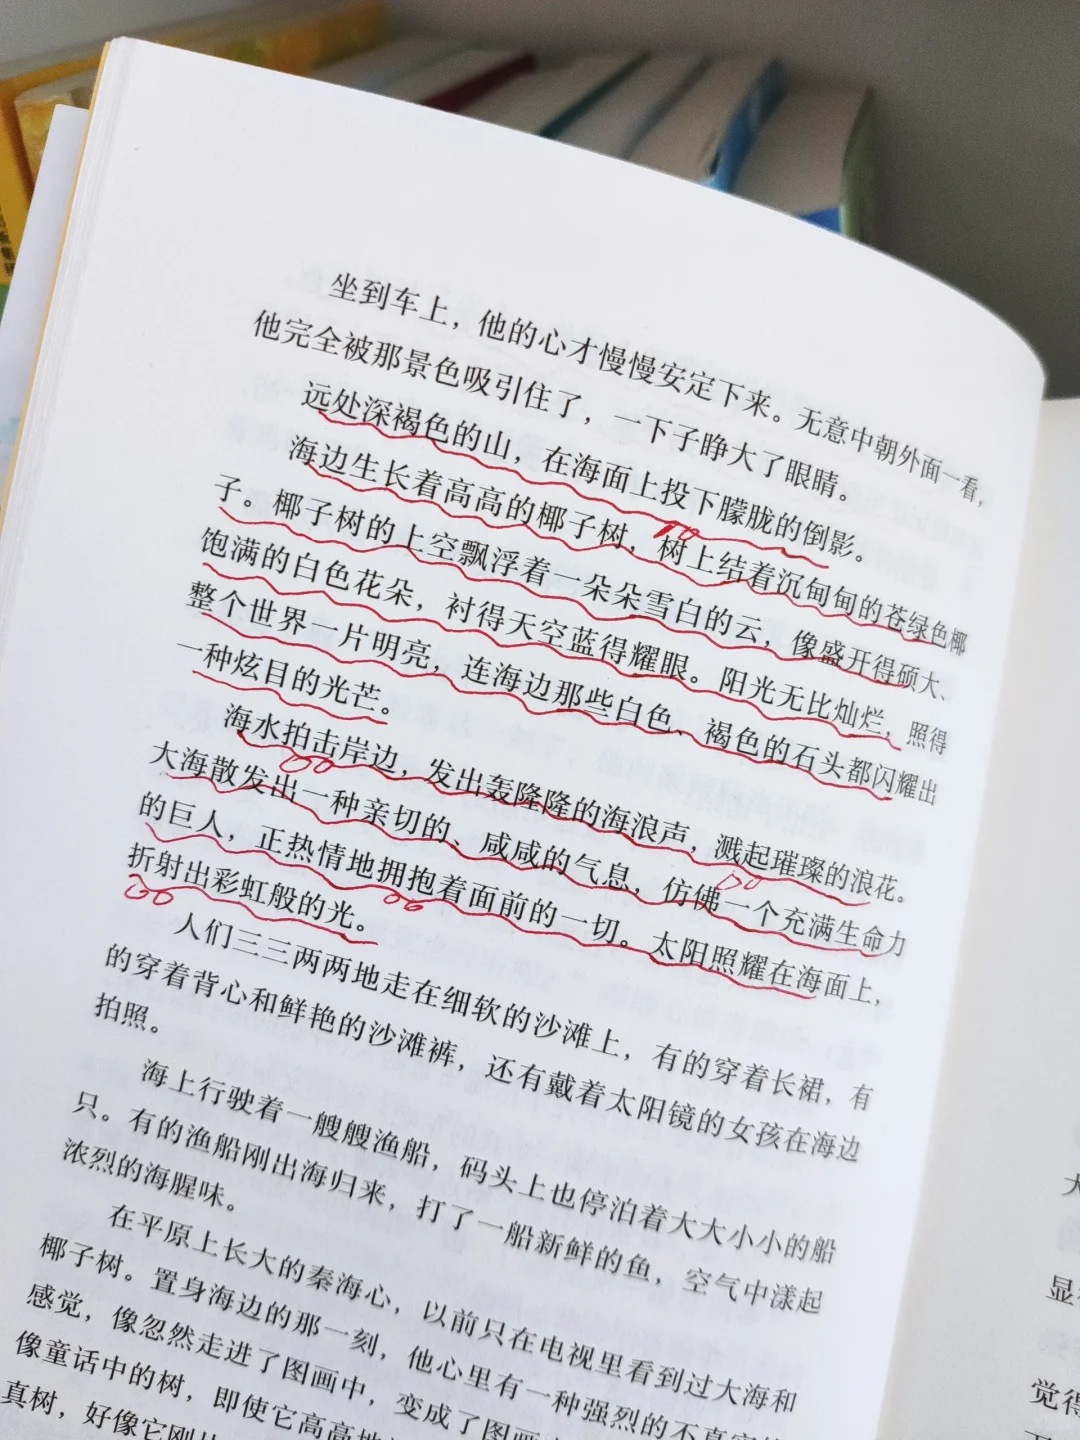 坐到车上，他的心才慢慢安定下来。无意中朝外面一看，
他完全被那景色吸引住了，一下子睁大了眼睛。
远处深褐色的山，在海面上投下朦胧的倒影。
海边生长着高高的椰子树，树上结着沉甸甸的苍绿色椰
子。椰子树的上空飘浮着一朵朵雪白的云，像盛开得硕大、
饱满的白色花朵，衬得天空蓝得耀眼。阳光无比灿烂，照得
整个世界一片明亮，连海边那些白色、褐色的石头都闪耀出
一种炫目的光芒。
海水拍击岸边，发出轰隆隆的海浪声，溅起璀璨的浪花。
大海散发出一种亲切的、咸咸的气息，仿佛一个充满生命力
的巨人，正热情地拥抱着面前的一切。太阳照耀在海面上，
折射出彩虹般的光。
人们三三两两地走在细软的沙滩上，有的穿着长裙，有
的穿着背心和鲜艳的沙滩裤，还有戴着太阳镜的女孩在海边
拍照。
海上行驶着一艘艘渔船，码头上也停泊着大大小小的船
只。有的渔船刚出海归来，打了一船新鲜的鱼，空气中漾起
浓烈的海腥味。
在平原上长大的秦海心，以前只在电视里看到过大海和
椰子树。置身海边的那一刻，他心里有一种强烈的不真实
感觉，像忽然走进了图画中，变成了图画
像童话中的树，即使它高高地
真树，好像它刚
大
显
觉得